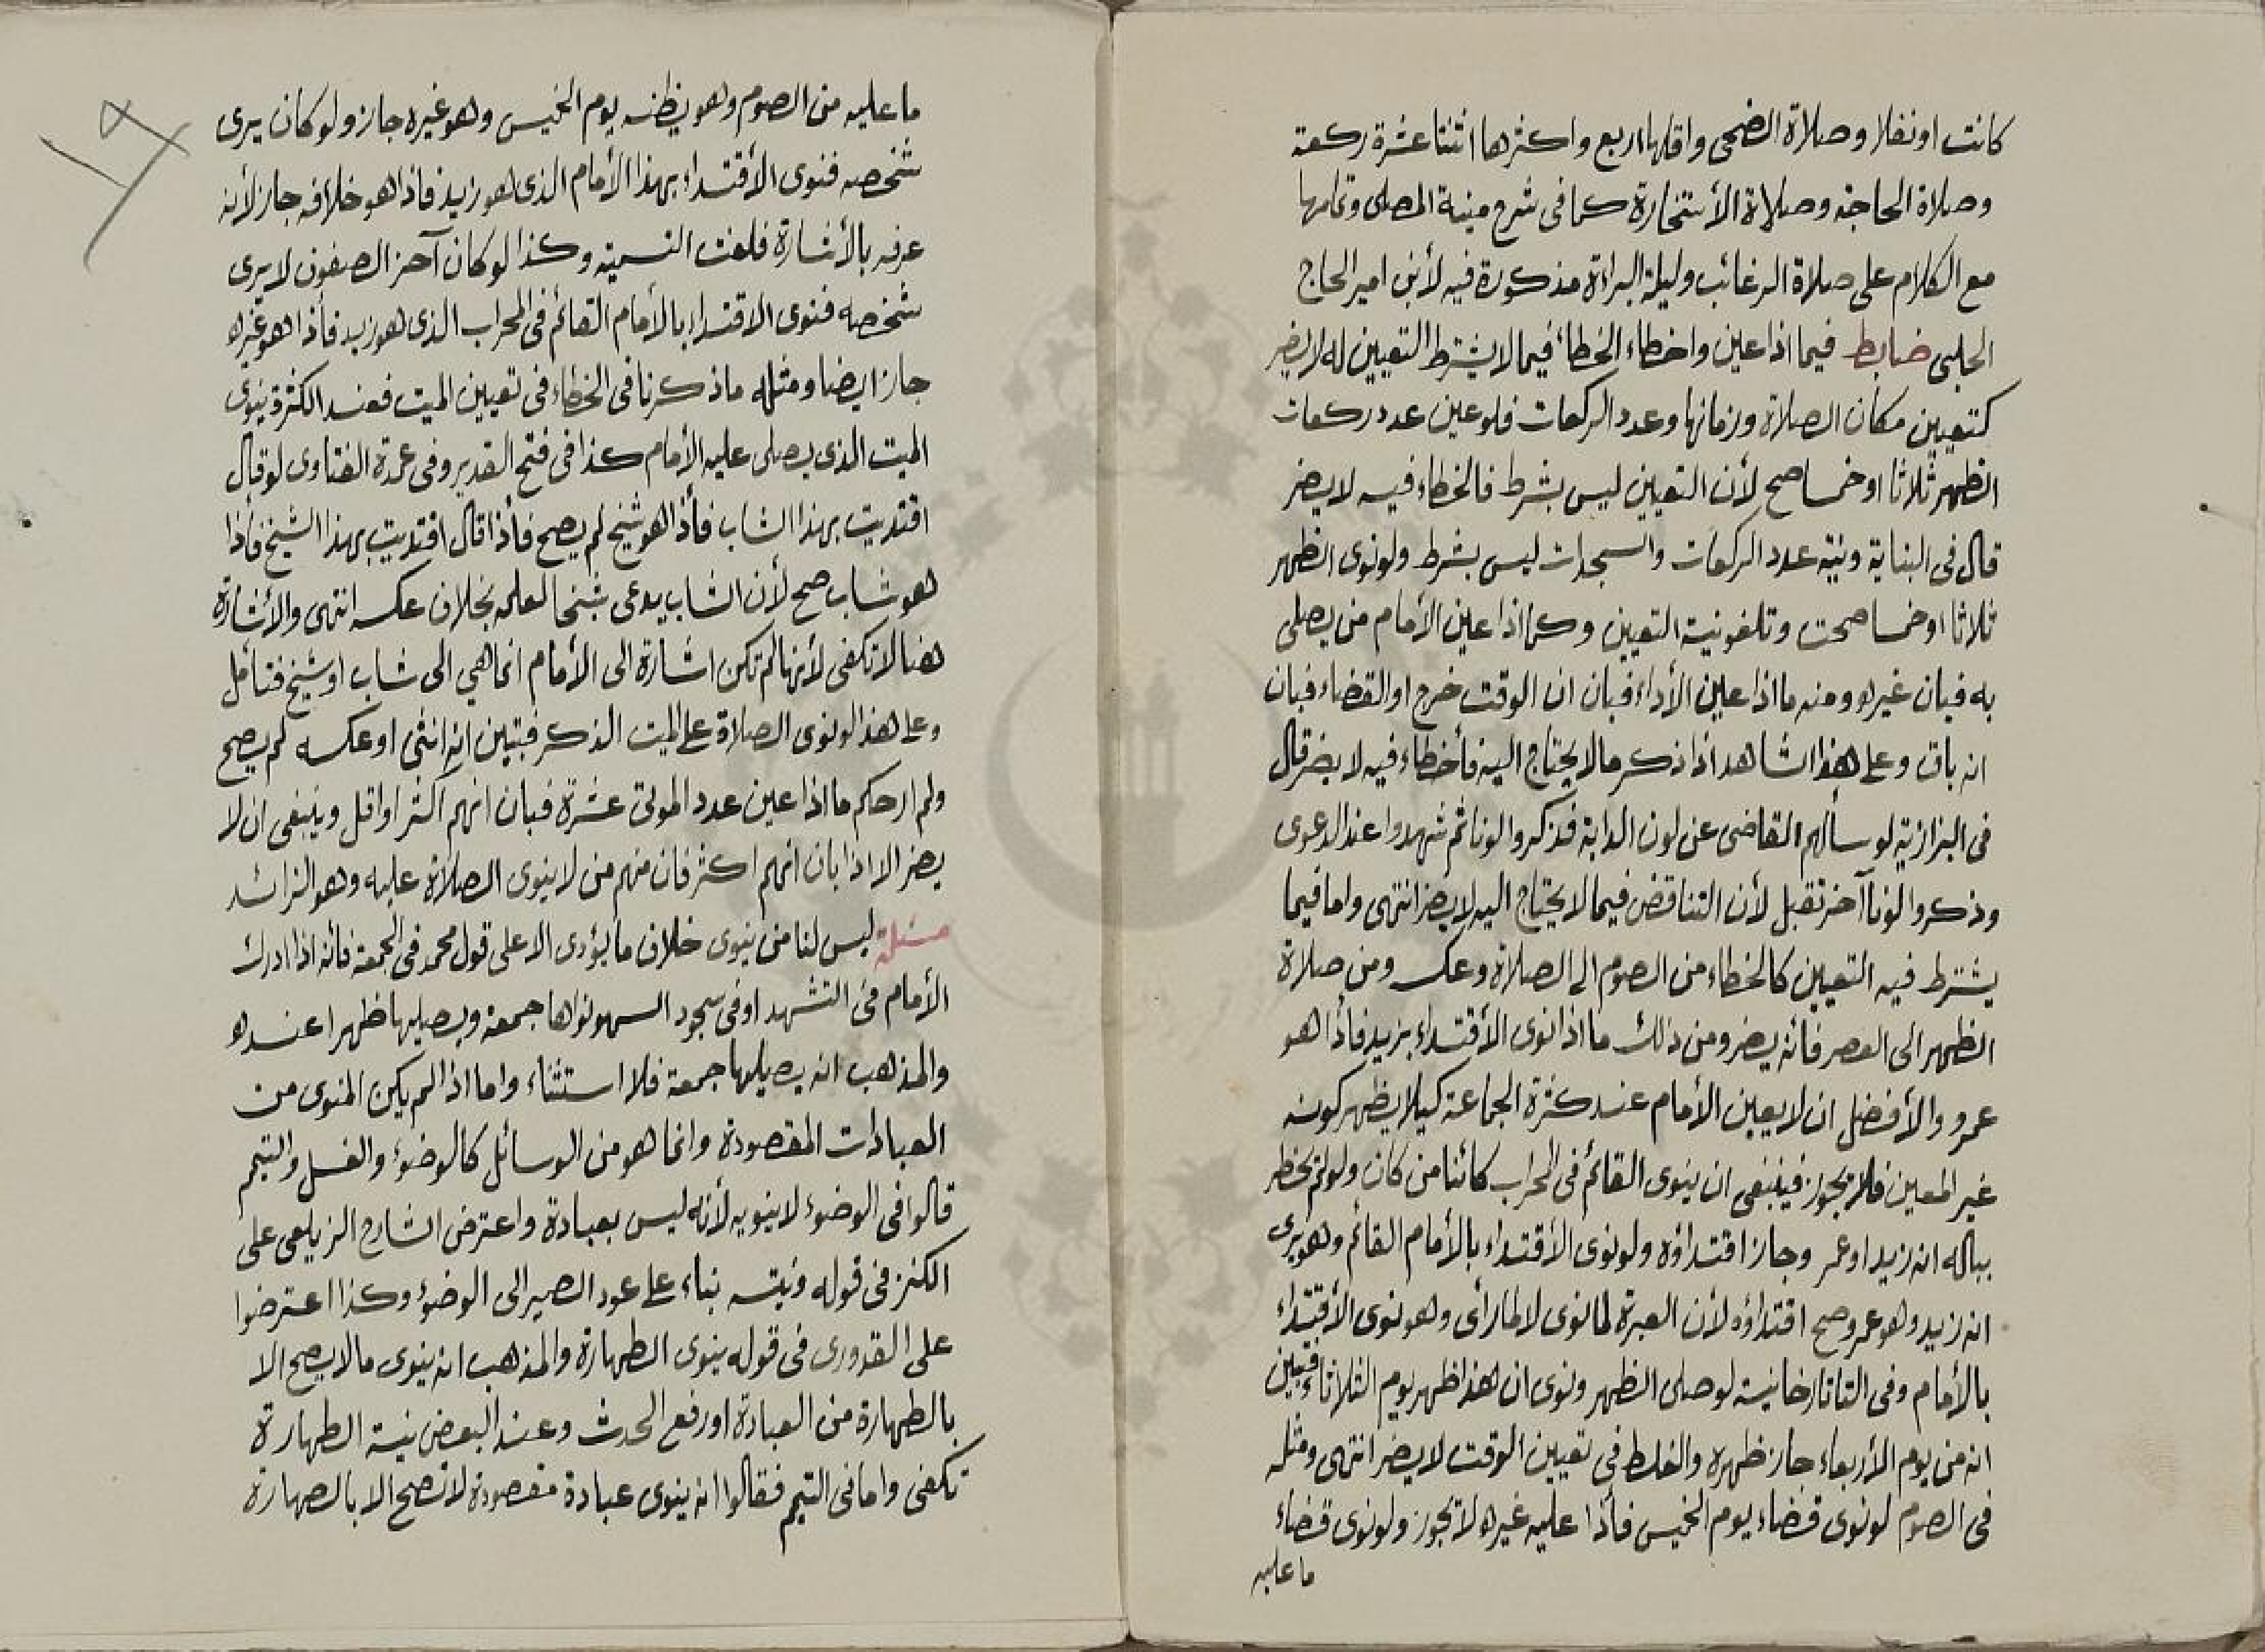 كانت او نفلا وصلاة الضحى واقلها اربع واكثرها اثنتا عشرة ركعة
وصلاة الحاجة وصلاة الأستخارة كما فى شرح منية المصلى وتمامها
مع الكلام على صلاة الرغائب وليلة البراءة مذكورة فيه لأبن امير الحاج
الحلبى ضابط فيما اذا عين واخطاء الخطاء فيما لا يشترط التعيين له لا يضر
كتعيين مكان الصلاة وزمانها وعدد الركعات فلو عين عدد ركعات
الظهر ثلاثا او خمسا صح لأن التعيين ليس بشرط فالخطاء فيه لا يضر
قال فى البناية ونية عدد الركعات والسجدات ليس بشرط ولو نوى الظهر
ثلاثا او خمسا صحت وتلغو نية التعيين وكما اذا عين الأمام من يصلى
به فبان غيره ومنه ما اذا عين الأداء فبان ان الوقت خرج او القضاء فبان
انه باق وعلى هذا الشاهد اذا ذكر ما لا يحتاج اليه فأخطاء فيه لا يضر قال
فى البزازية لو سألهم القاضى عن لون الدابة فذكروا لونا ثم شهدوا عند الدعوى
وذكروا لونا آخر تقبل لأن التناقض فيما لا يحتاج اليه لا يضر انتهى واما فيما
يشترط فيه التعيين كالخطاء من الصوم الى الصلاة وعكسه ومن صلاة
الظهر الى العصر فأنه يضر ومن ذلك ما اذا نوى الأقتداء بزيد فأذا هو
عمرو والأفضل ان لا يعين الأمام عند كثرة الجماعة كيلا يظهر كونه
غير المعين فلا يجوز فينبغى ان ينوى القائم فى المحراب كائنا من كان ولو لم يخطر
بباله انه زيد او عمر وجاز اقتداؤه ولو نوى الأقتداء بالأمام القائم وهو يرى
انه زيد وهو عمرو صح اقتداؤه لأن العبرة لما نوى لا لما رأى وهو نوى الأقتداء
بالأمام وفى التاتارخانية لو صلى الظهر ونوى ان هذا ظهر يوم الثلاثاء فتبين
انه من يوم الأربعاء جاز ظهره والغلط فى تعيين الوقت لا يضر انتهى ومثله
فى الصوم لو نوى قضاء يوم الخميس فأذا عليه غيره لا تجوز ولو نوى قضاء
ما عليه
ما عليه من الصوم وهو يظنه يوم الخميس وهو غيره جاز ولو كان يرى
شخصه فنوى الأقتداء بهذا الأمام الذى هو زيد فاذا هو خلافه جاز لأنه
عرفه بالأشارة فلغت التسمية وكذا لو كان آخر الصفوف لا يرى
شخصه فنوى الاقتداء بالأمام القائم فى المحراب الذى هو زيد فأذا هو غيره
جاز ايضا ومثله ما ذكرنا فى الخطاء فى تعيين الميت فعند الكثرة ينوى
الميت الذى يصلى عليه الأمام كذا فى فتح القدير وفى عمدة الفتاوى لو قال
اقتديت بهذا الشاب فأذا هو شيخ لم يصح فأذا قال اقتديت بهذا الشيخ فأذا
هو شاب صح لأن الشاب يدعى شيخا لعلمه بخلاف عكسه انتهى والأشارة
هنا لا تكفى لأنها لم تكن اشارة الى الأمام انما هي الى شاب او شيخ فتأمل
وعلى هذا لو نوى الصلاة على الميت الذكر فتبين انه انثى او عكسه لم يصح
ولم ار حكم ما اذا عين عدد الموتى عشرة فبان انهم اكثر او اقل وينبغى ان لا
يضر الا اذا بان انهم اكثر فان منهم من لا ينوى الصلاة عليه وهو الزائد
مسئلة ليس لنا من ينوى خلاف ما يؤدى الا على قول محمد فى الجمعة فأنه اذا ادرك
الأمام فى التشهد او فى سجود السهو نواها جمعة ويصليها ظهرا عنده
والمذهب انه يصليها جمعة فلا استثناء واما اذا لم يكن المنوى من
العبادات المقصودة وانما هو من الوسائل كالوضوء والغسل والتيمم
قالوا فى الوضوء لا ينويه لأنه ليس بعبادة واعترض الشارح الزيلعى على
الكنز فى قوله ونيته بناء على عود الضمير الى الوضوء وكذا اعترضوا
على القدورى فى قوله ينوى الطهارة والمذهب انه ينوى ما لا يصح الا
بالطهارة من العبادة او رفع الحدث وعند البعض نية الطهارة
تكفى واما فى التيمم فقالوا انه ينوى عبادة مقصودة لا تصح الا بالصهارة